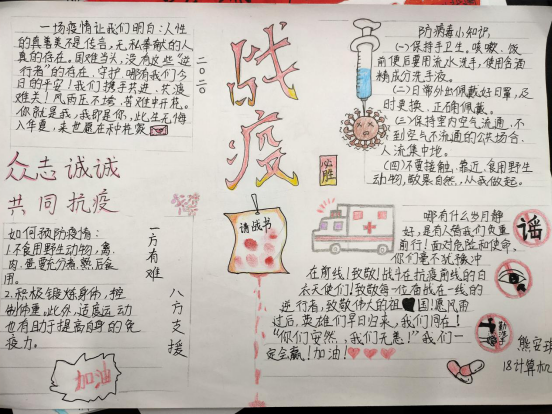 一场疫情让我们明白:人性
的真善美不是传言,无私奉献的人
真的存在。国难当头,没有这些“逆
行者”的存在,守护,哪有我们今
日的平安!我们携手共进,共渡
难关!风雨压不垮,苦难中开花。
你就是我,我即是你,此生无悔
入华夏,来世愿在种花家
二〇二〇
众志诚诚
共同抗疫
如何预防疫情:
1.不食用野生动物,禽、
肉、蛋要充分煮熟后食
用。
2.积极锻炼身体,控
制体重。此外,适度运动
也有助于提高自身的免
疫力。
一方有难
八方支援
加油
战
疫
必胜
请战书
防病毒小知识,
(一)保持手卫生。咳嗽、饭
前便后要用流水洗手,使用含酒
精成分洗手液。
(二)日常外出佩戴好口罩,及
时更换,正确佩戴。
(三)保持室内空气流通,不
到空气不流通的公共场合、
人流集中地。
(四)不要接触、靠近、食用野生
动物,敬畏自然,从我做起。
哪有什么岁月静
好,是有人替我们负重
前行!面对危险和使命。
你们毫不犹豫冲
在前线!致敬!战斗在抗疫前线的白
衣天使们!致敬每一位奋战在一线的
逆行者,致敬伟大的祖国!愿风雨
过后,英雄们早日归来,我们同在!
“你们安然,我们无恙!”我们一
定会赢!加油!
谣
18计算机